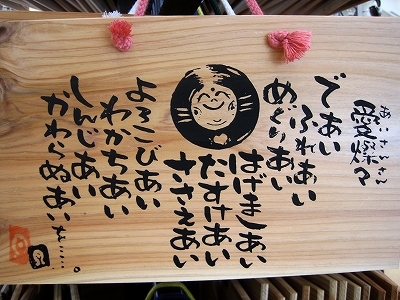 あいさんさん
愛燦々
であい
ふれあい
めぐりあい
はげましあい
たすけあい
ささえあい
よろこびあい
わかちあい
しんじあい
かわらぬあいを
ここに。